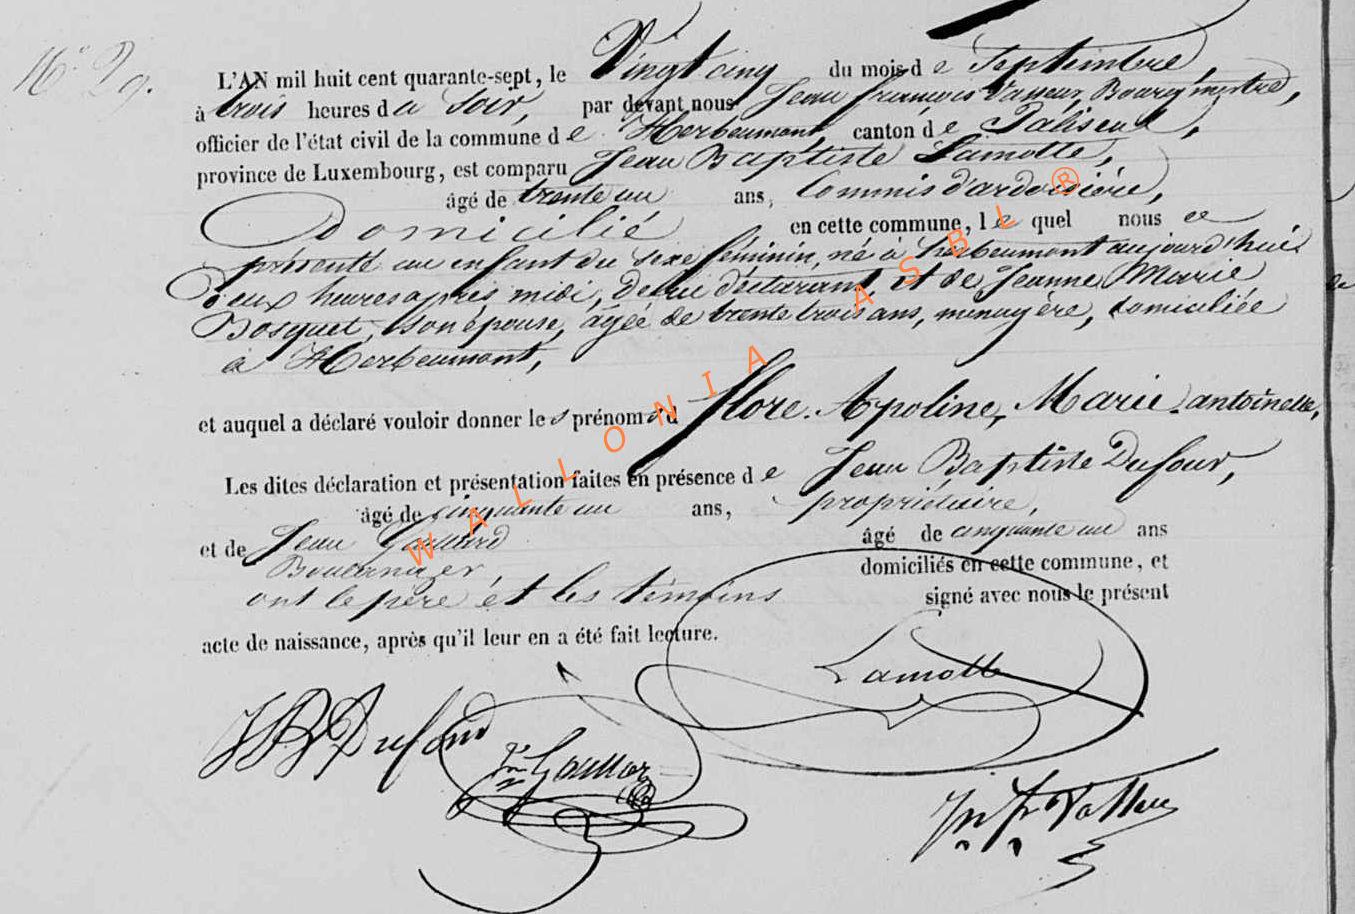 N° 29.
L'AN mil huit cent quarante-sept, le Vingt cinq du mois de Septembre,
à trois heures du Soir, par devant nous Jean françois Vasseur, Bourgmestre,
officier de l'état civil de la commune de Herbeumont, canton de Paliseul,
province de Luxembourg, est comparu Jean Baptiste Lamotte,
âgé de trente un ans, Commis d'ardoisière,
Domicilié en cette commune, lequel nous a
présenté un enfant du sexe féminin, né à herbeumont aujourd'hui à
deux heures après midi, de lui déclarant, et de Jeanne Marie
Bosquet, son épouse, agée de trente trois ans, ménagère, domiciliée
à Herbeumont,
et auquel a déclaré vouloir donner les prénoms de flore. Apoline, Marie. antoinette,
Les dites déclaration et présentation faites en présence de Jean Baptiste Dufour,
âgé de cinquante un ans, propriétaire,
et de Jean Goullard âgé de cinquante un ans
Boulanger, domiciliés en cette commune, et
ont le père et les témoins signé avec nous le présent
acte de naissance, après qu'il leur en a été fait lecture.
Lamotte
JB Dufour
WALLONIA ASBL ®